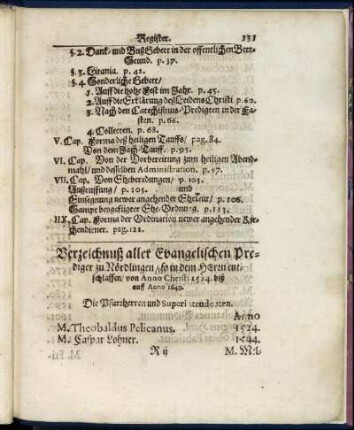 Register. 131
§. 2. Dank- und Bußgebett in der offentlichen Bett-
Stund. p. 37.
§. 3. Litania. p. 42.
§. 4. Sonderliche Gebett/
1. Auff die hohe Fest im Jahr. p. 45.
2. Auff die Erklärung deß Leidens Christi p. 60.
3. Nach den Catechismus-Predigten in der Fa-
sten. p. 66.
4. Collecten. p. 68.
V. Cap. Forma deß heiligen Tauffs/ pag. 84.
Von dem Jach-Tauff. p. 93.
VI. Cap. Von der Vorbereitung zum heiligen Abend-
mahl/ und desselben Administration. p. 97.
VII. Cap. Von Eheberedungen/ p. 103.
Außruffung/ p. 105. und
Einsegnung newer angehender Eheleut/ p. 106.
Sampt beygefügter Ehe-Ordnung. p. 113.
IIX. Cap. Forma der Ordination newer angehender Kir-
chendiener. pag. 121.
Verzeichnuß aller Evangelischen Pre-
diger zu Nördlingen/ so in dem HErrn ent-
schlaffen/ von Anno Christi 1524. biß
auff Anno 1649.
Die Pfarrherren und Superintendenten.
Anno
M. Theobaldus Pelicanus. 1524.
M. Caspar Lohner. 1544.
R ij M. Mel-